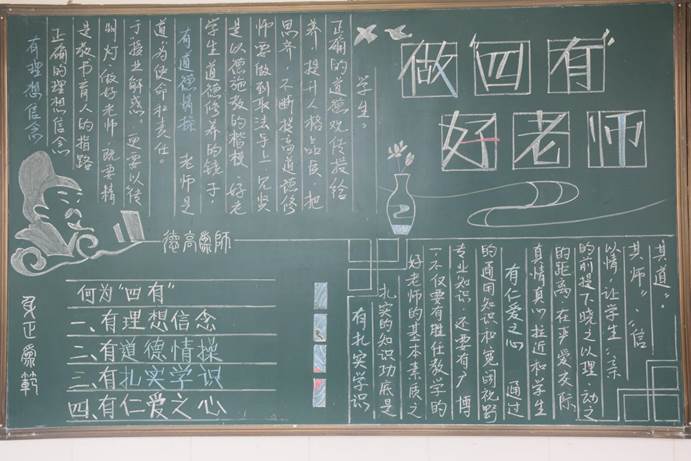 做“四有”
好老师
有理想信念
正确的理想信念
是教书育人的指路
明灯做好老师,就要精
于授业解惑,更要以传
道为使命和责任。
有道德情操 老师是
学生道德修养的镜子,
是以德施教的楷模,好老
师要做到取法于上,见贤
思齐,不断提高道德修
养,提升人格品质,把
正确的道德观传授给
学生。
德高爲师
身正爲範
何为“四有”
一、有理想信念
二、有道德情操
三、有扎实学识
四、有仁爱之心
有扎实学识
扎实的知识功底是
好老师的基本素质之
一,不仅要有胜任教学的
专业知识,还要有广博
的通用知识和宽阔视野
有仁爱之心 通过
真情真心拉近和学生
的距离,在严爱交际
的前提下晓之以理,动之
以情,让学生“亲
其师”,“信
其道”。